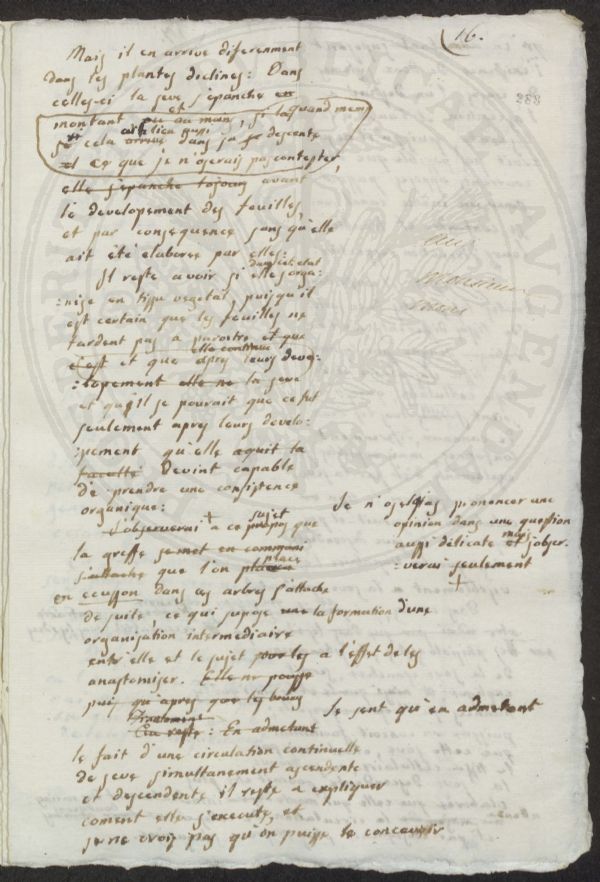 16.
288
Mais il en arrive diferenment
dans les plantes diclines: Dans
celles-ci la seve s'épanche en
montant et ou au moins, si la quand meme
se cela arrive aussi lieu dans sa descente
et ce que je n'oserais pas contester,
elle s'epanche tojours avant
le developement des feuilles,
et par consequence sans qu'elle
ait été elaborée par elles:
Il reste a voir si dans cet etat elle s'orga:
:nise en tissu vegetal, puisqu'il
est certain que les feuilles ne
tardent pas a paroitre et que
c'est et que apres elle continue leurs deve:
:lopement elle ne la seve
et qu'il se pourait que ce fut
seulement apres leurs develo:
:pement qu'elle aquit la
faculté Devint capable
de prendre une consistence
organique:
Je n'ose pas prononcer une
opinion dans une question
aussi délicate et mais j'obser:
:verai seulement
+
J'observerai + a ce propos sujet que
la greffe se met en
s'attache que l'on place
en ecusson dans ces arbres s'attache
de suite, ce qui supose une la formation d'une
organisation intermediaire
entre elle et le sujet pour les a l'effet de les
anastomiser. Elle ne pousse
puis qu'apres que les
Je sent qu'en admetant
Au reste: En admetant
le fait d'une circulation continuelle
de seve simultanement ascendente
et descendente il reste a expliquer
coment elle s'execute, et
je ne crois pas qu'on puisse le concevoir